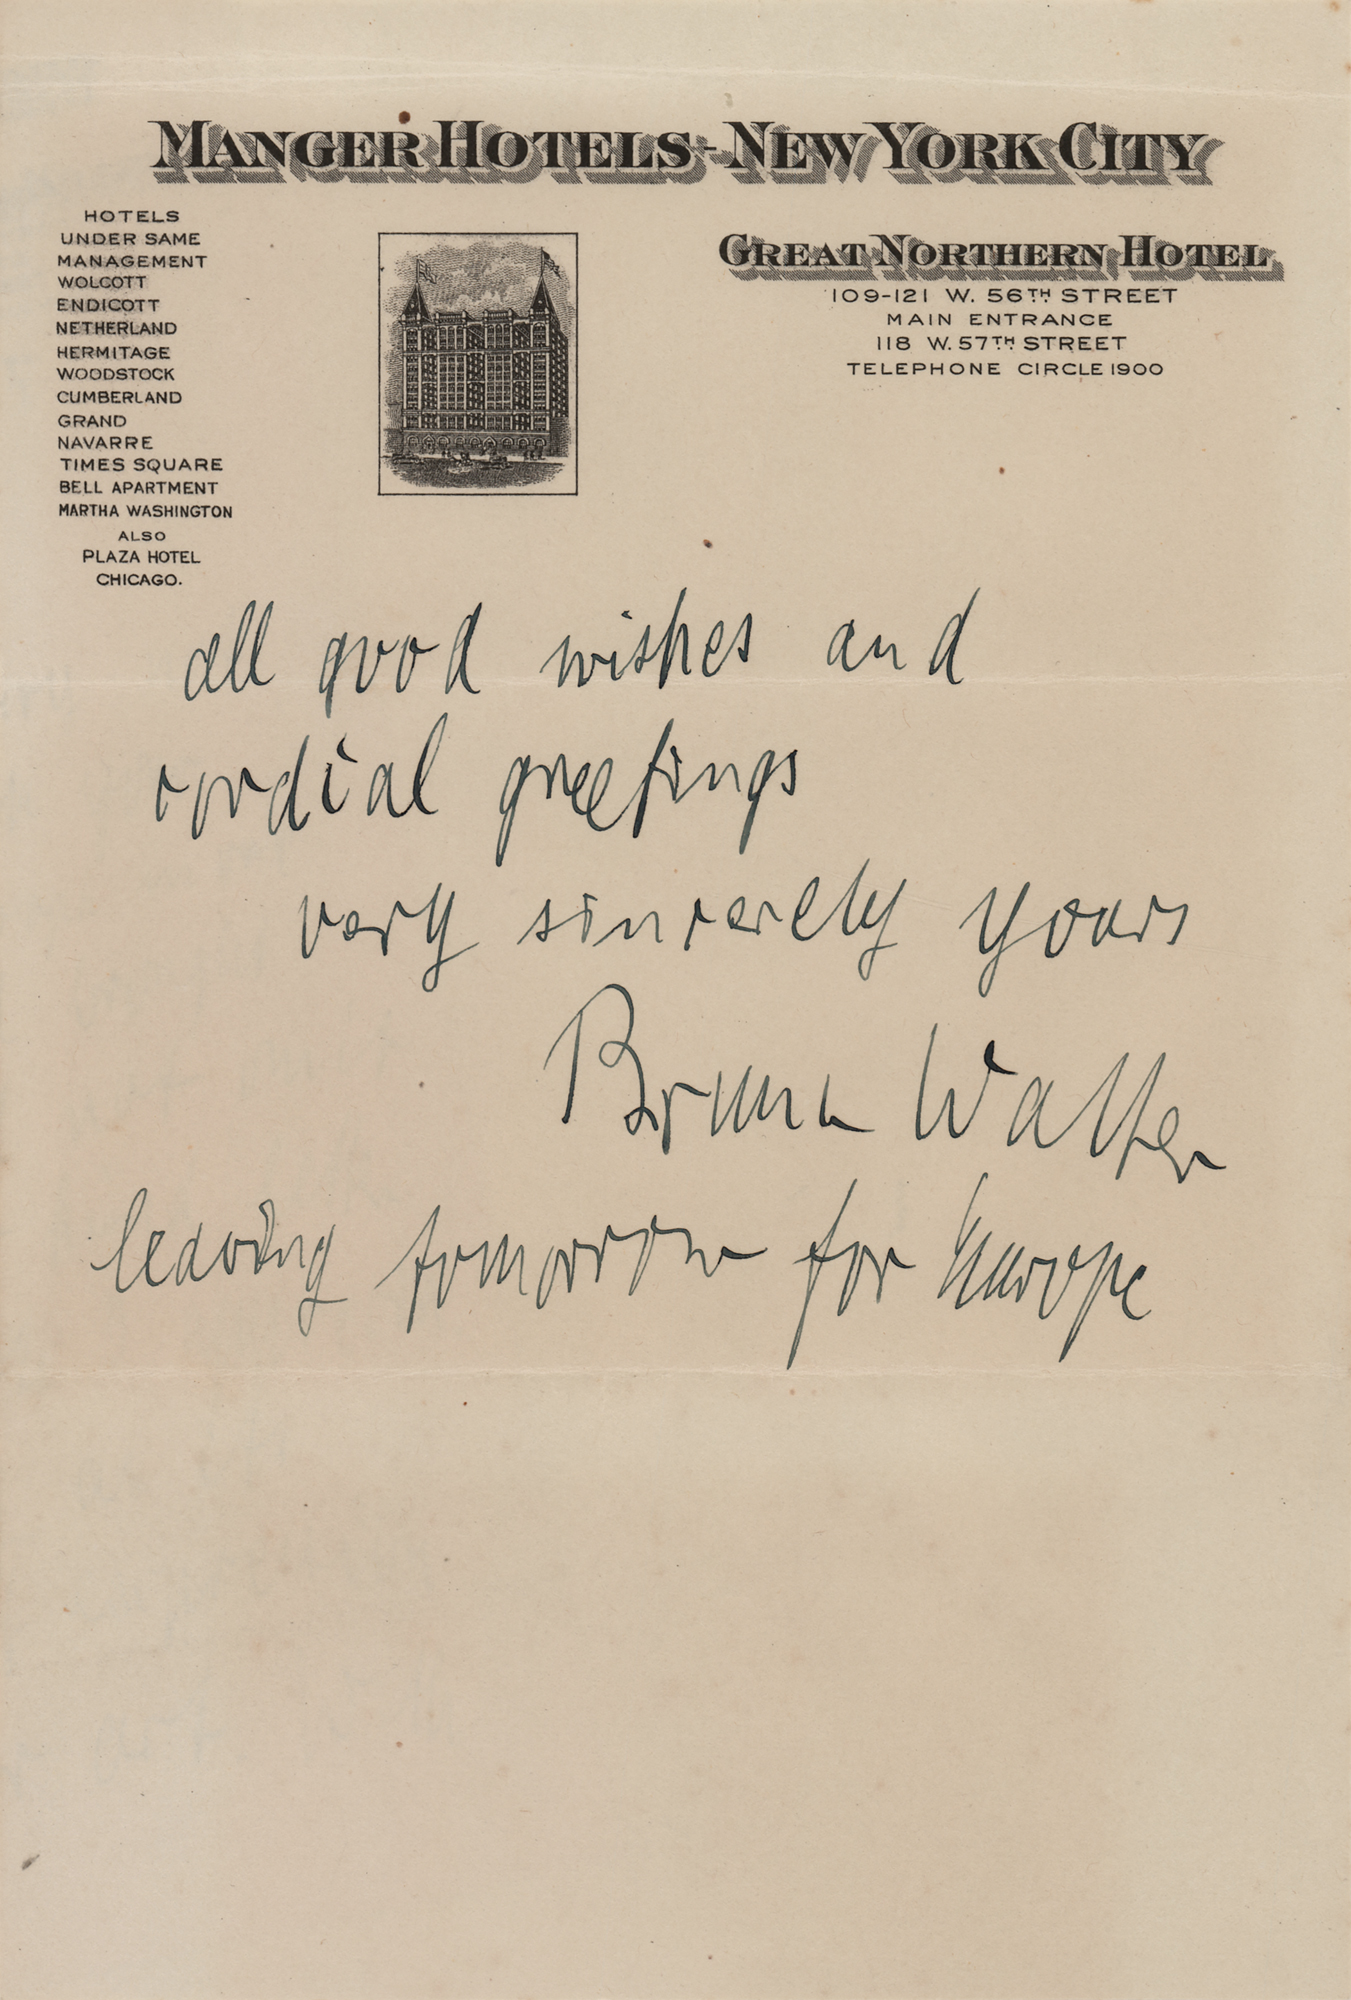 MANGER HOTELS-NEW YORK CITY
HOTELS
UNDER SAME
MANAGEMENT
WOLCOTT
ENDICOTT
NETHERLAND
HERMITAGE
WOODSTOCK
CUMBERLAND
GRAND
NAVARRE
TIMES SQUARE
BELL APARTMENT
MARTHA WASHINGTON
ALSO
PLAZA HOTEL
CHICAGO.
GREAT NORTHERN HOTEL
109-121 W. 56TH STREET
MAIN ENTRANCE
118 W. 57TH STREET
TELEPHONE CIRCLE 1900
all good wishes and
cordial greetings
very sincerely yours
Bruno Walter
leaving tomorrow for Europe